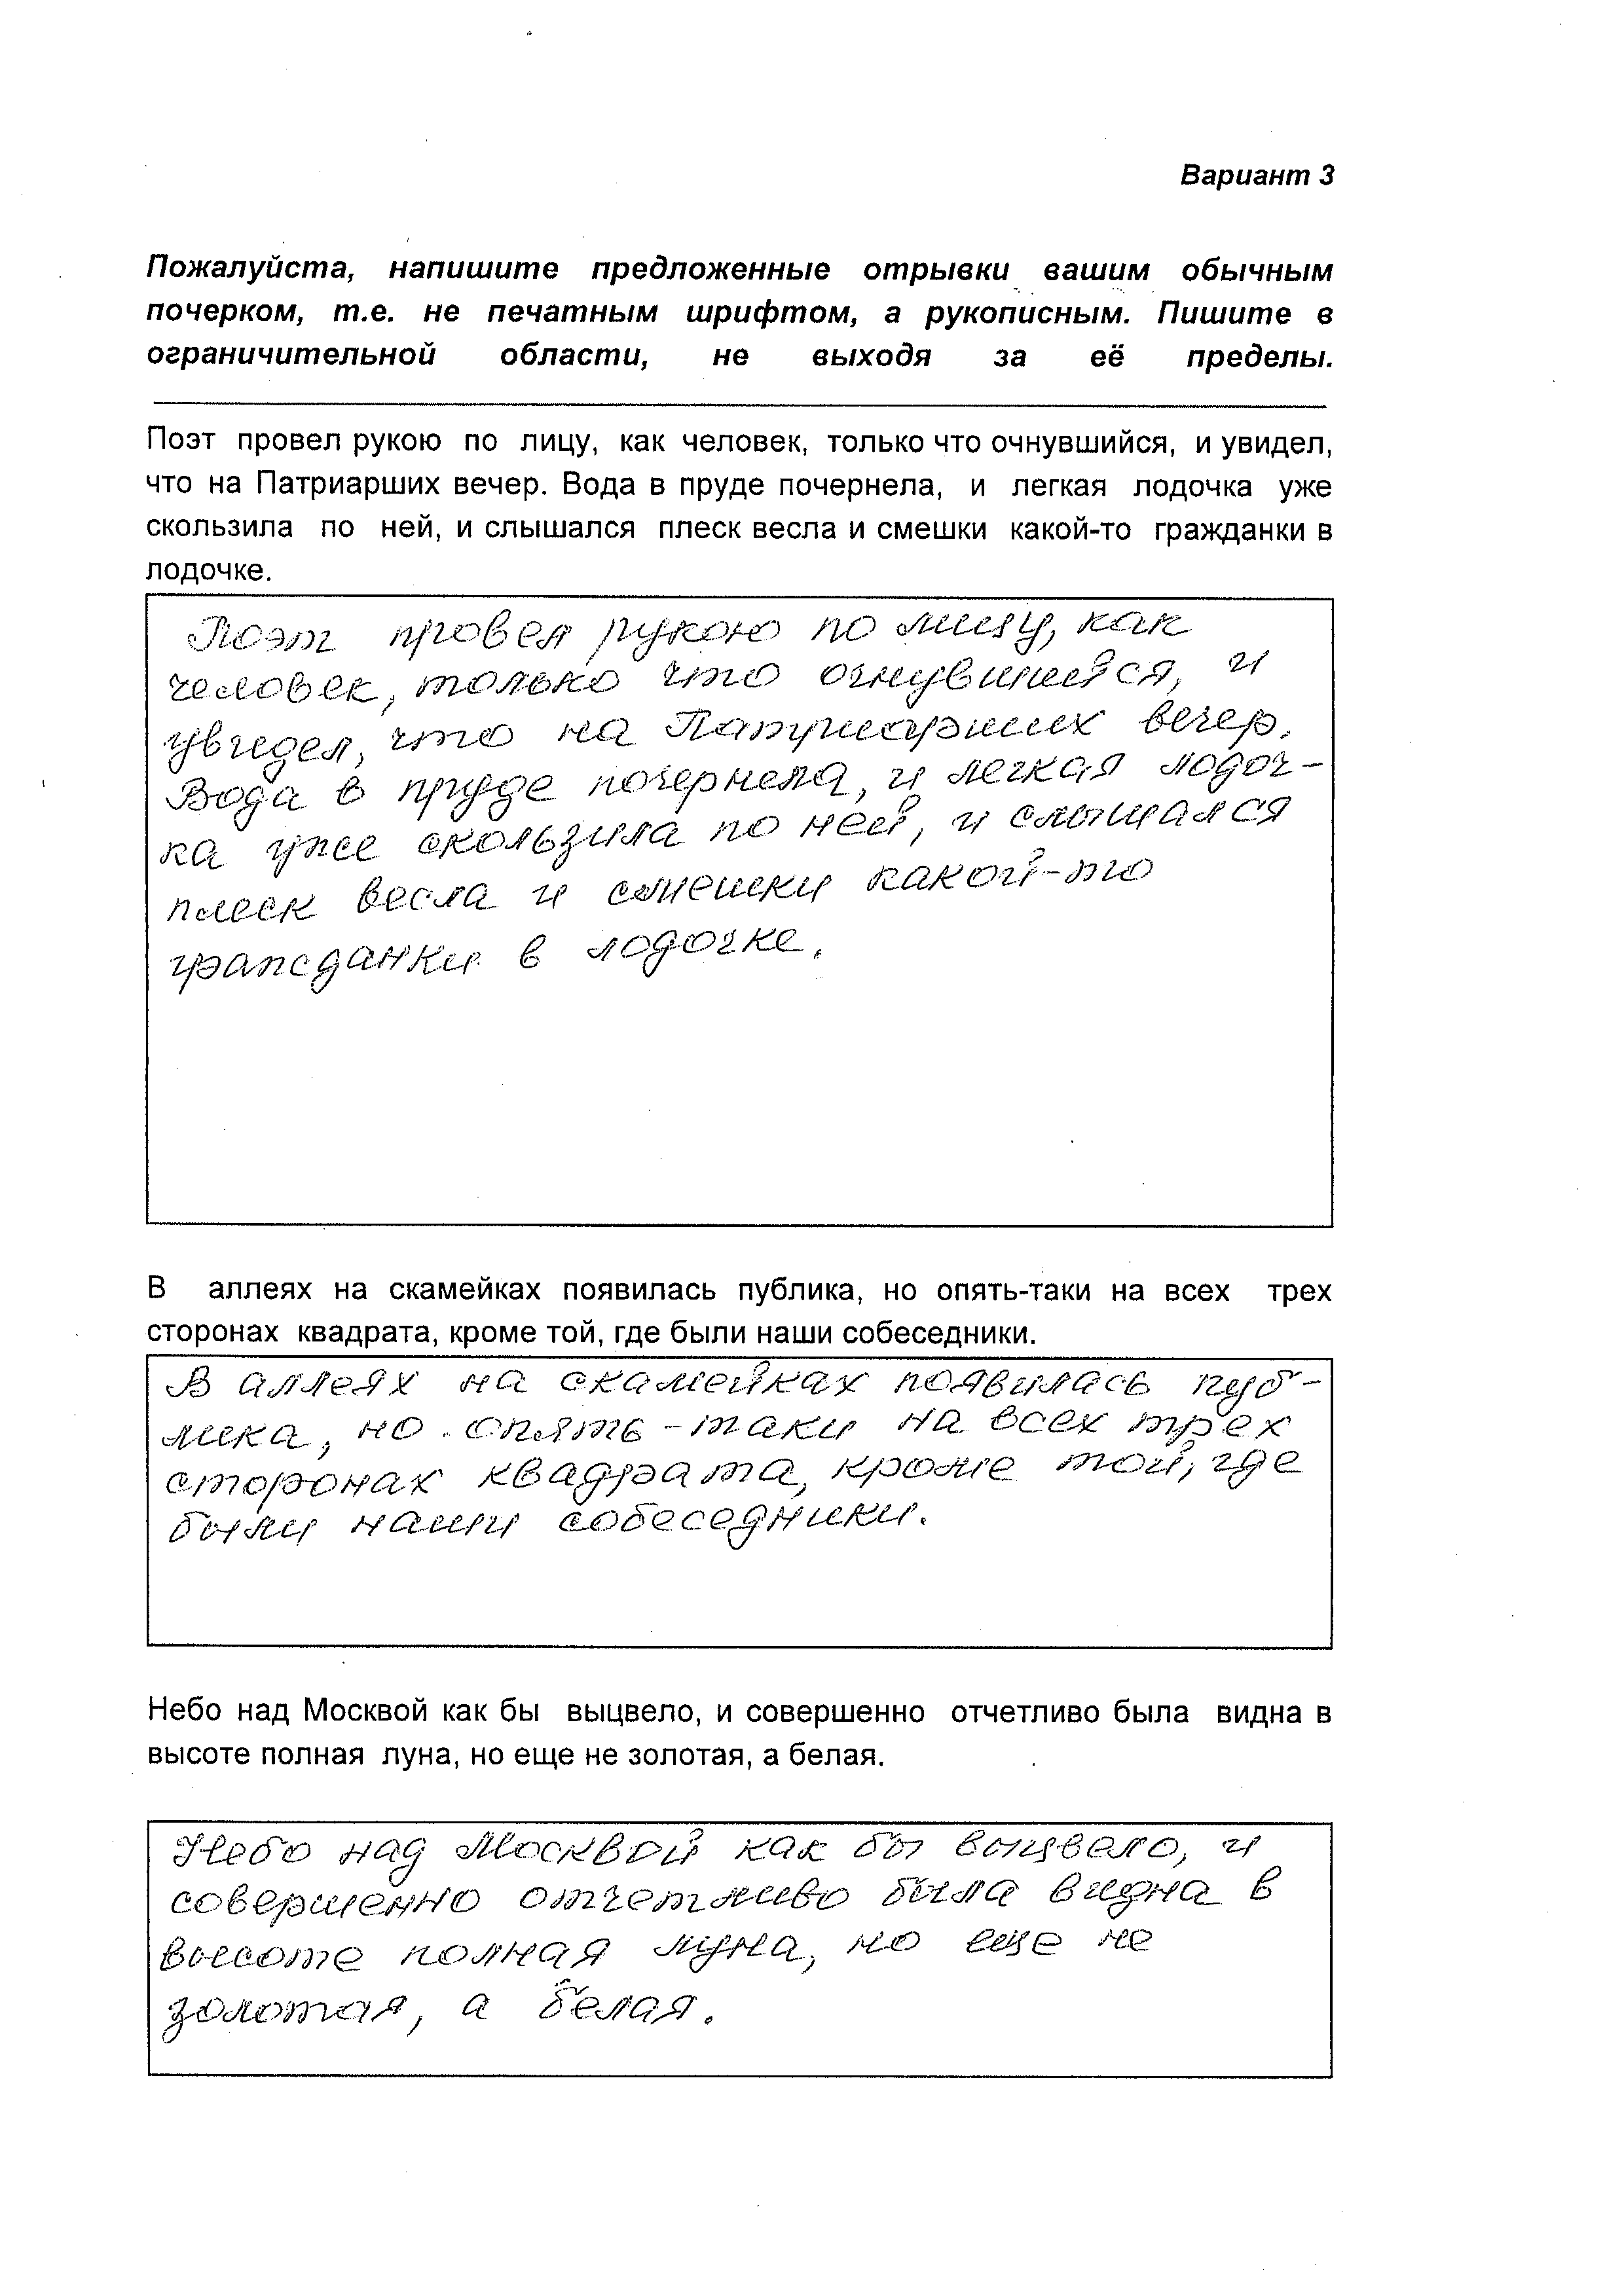 Вариант 3
Пожалуйста, напишите предложенные отрывки вашим обычным
почерком, т.е. не печатным шрифтом, а рукописным. Пишите в
ограничительной области, не выходя за её пределы.
Поэт провел рукою по лицу, как человек, только что очнувшийся, и увидел,
что на Патриарших вечер. Вода в пруде почернела, и легкая лодочка уже
скользила по ней, и слышался плеск весла и смешки какой-то гражданки в
лодочке.
Поэт провел рукою по лицу, как
человек, только что очнувшийся, и
увидел, что на Патриарших вечер.
Вода в пруде почернела, и легкая лодоч-
ка уже скользила по ней, и слышался
плеск весла и смешки какой-то
гражданки в лодочке.
В аллеях на скамейках появилась публика, но опять-таки на всех трех
сторонах квадрата, кроме той, где были наши собеседники.
В аллеях на скамейках появилась пуб-
лика, но опять-таки на всех трех
сторонах квадрата, кроме той, где
были наши собеседники.
Небо над Москвой как бы выцвело, и совершенно отчетливо была видна в
высоте полная луна, но еще не золотая, а белая.
Небо над Москвой как бы выцвело, и
совершенно отчетливо была видна в
высоте полная луна, но еще не
золотая, а белая.